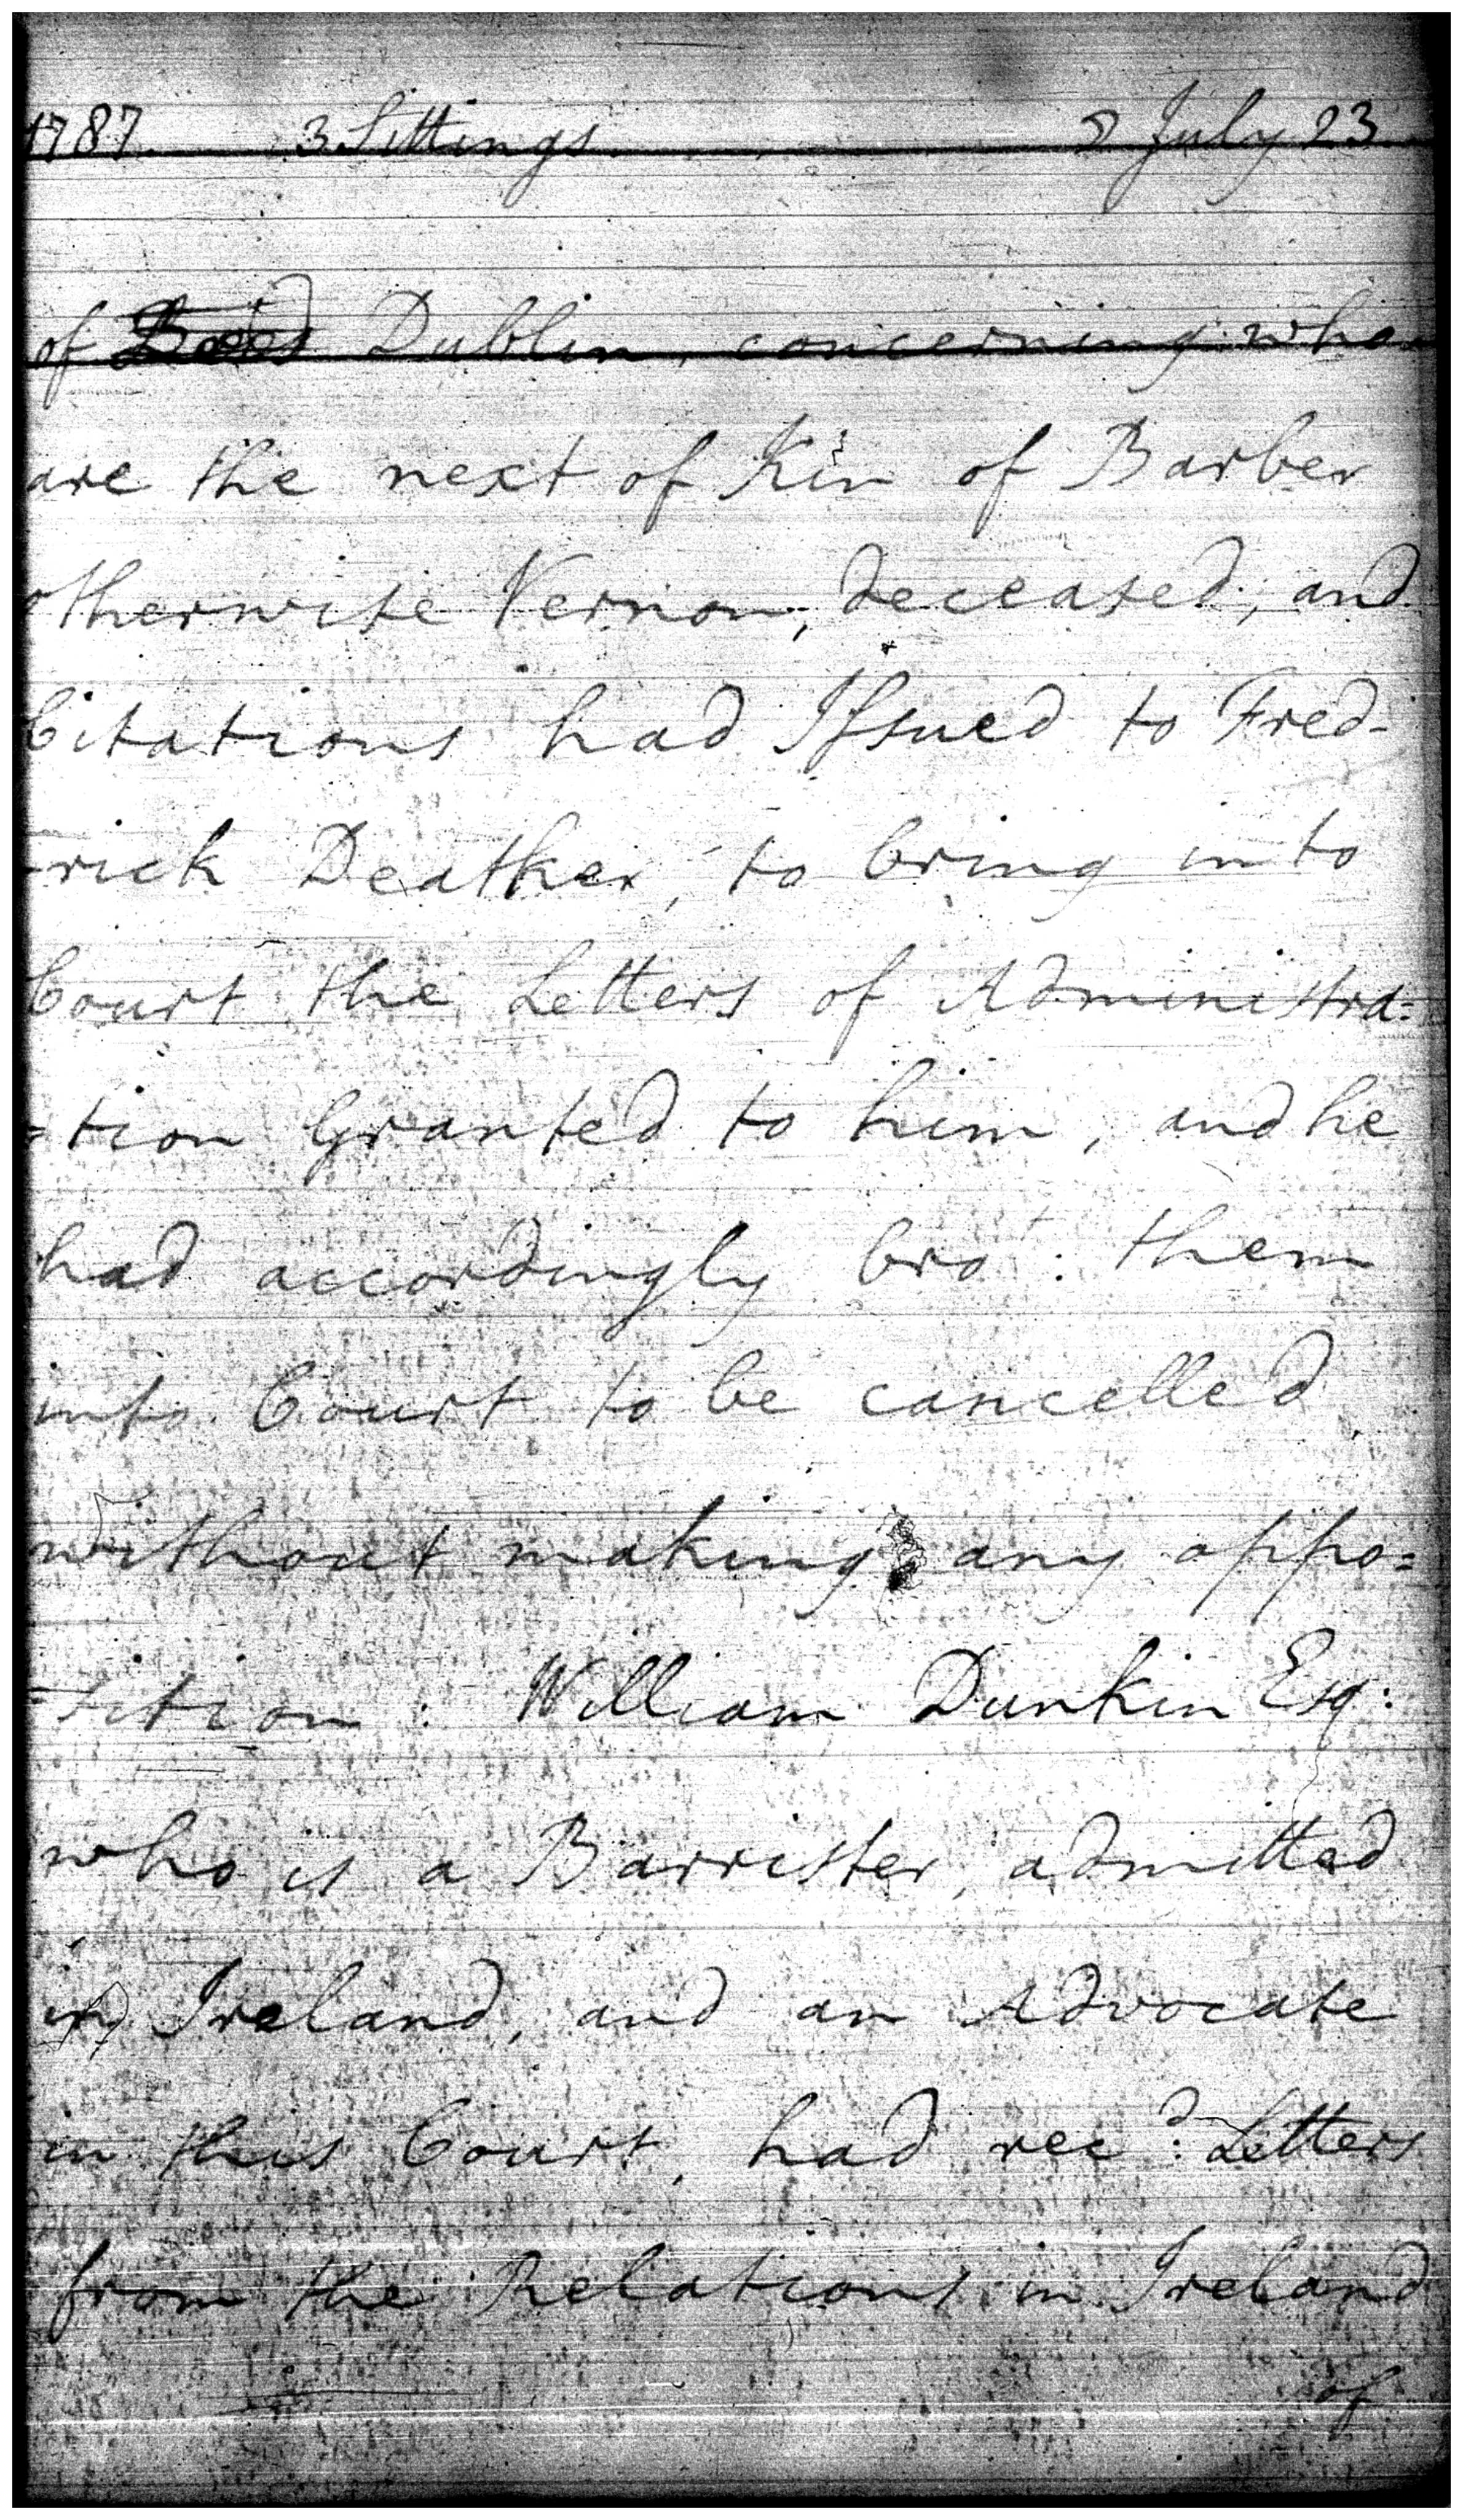 1787 3 Sittings July 23
of Dublin, concerning who
are the next of Kin of Barber
otherwise Vernon, deceased; and
Citations had Issued to Fred-
-rick Deatker, to bring into
Court the Letters of Administra=
=tion Granted to him, and he
had accordingly bro^t: them
into Court to be cancelled
without making any oppo=
=sition: William Dunkin Esq:
who is a Barrister, admitted
in Ireland, and an Advocate
in this Court, had rec^d: Letters
from the Relations in Ireland
of